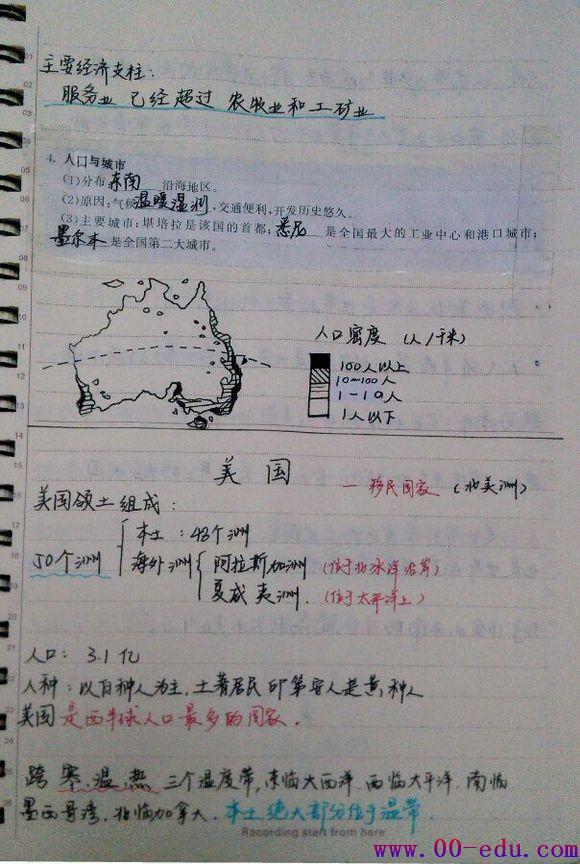 主要经济支柱:
服务业 已经超过 农牧业和工矿业
4. 人口与城市
(1)分布:东南 沿海地区。
(2)原因:气候温暖湿润,交通便利,开发历史悠久。
(3)主要城市:堪培拉是该国的首都;悉尼 是全国最大的工业中心和港口城市;
墨尔本是全国第二大城市。
人口密度 (人/千米)
100人以上
10~100人
1-10人
1人以下
美 国
— 移民国家 (北美洲)
美国领土组成:
50个洲
本土:48个洲
海外洲
阿拉斯加洲 (位于北冰洋沿岸)
夏威夷洲. (位于太平洋上)
人口: 3.1亿
人种:以白种人为主.土著居民印第安人是黄种人
美国是西半球人口最多的国家.
跨 寒.温.热 三个温度带,东临大西洋.西临太平洋.南临
墨西哥湾.北临加拿大.本土绝大部分位于温带.
Recording start from here
www.00-edu.com